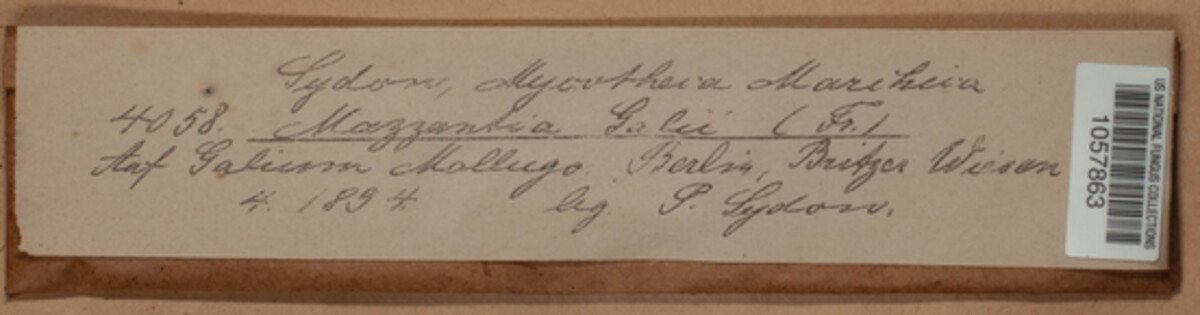 Sydow, Mycotheca Marchica
4058. Mazzantia Galii (Fr.)
Auf Galium Mollugo. Berlin, Britzer Wiesen
4. 1894. leg. P. Sydow.
US NATIONAL FUNGUS COLLECTIONS
1057863